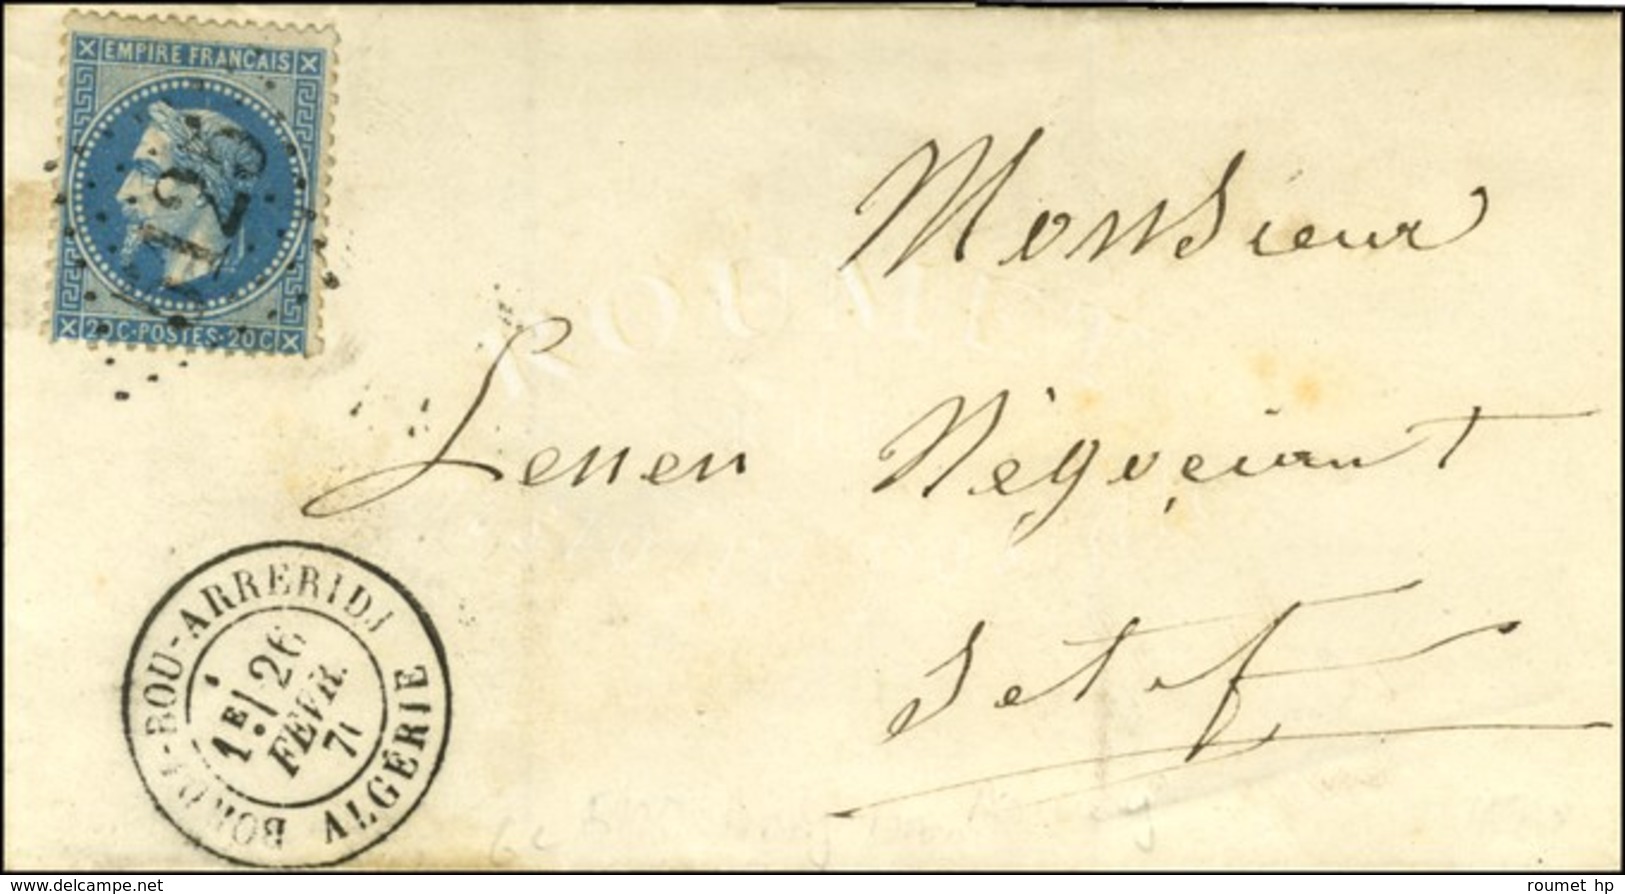 EMPIRE FRANÇAIS
5125
20C·POSTES·20C
Monsieur
Lenen Négociant
Setif
BORDJ-BOU-ARRERIDJ
1E 26
FEVR.
71
ALGÉRIE
ROUMET
www.delcampe.net
roumet hp